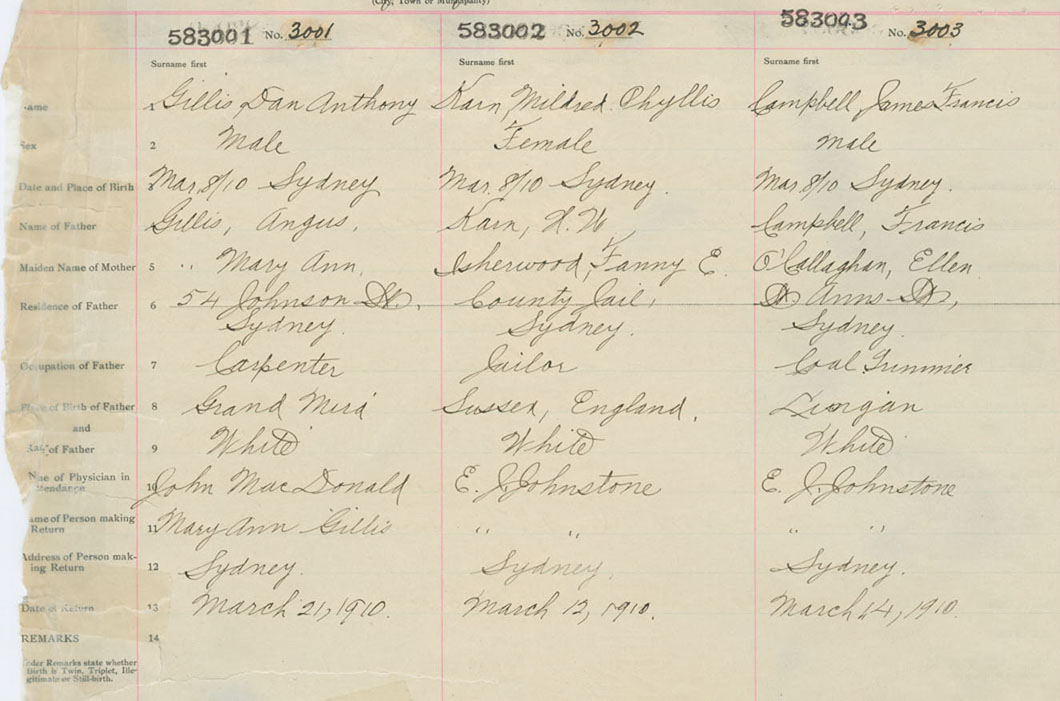 (City, Town or Municipality)
583001 No. 3001 583002 No. 3002 583003 No. 3003
Surname first Surname first Surname first
ame 1 Gillis, Dan Anthony Karn, Mildred Phyllis Campbell, James Francis
Sex 2 Male Female Male
Date and Place of Birth 3 Mar. 8/10 Sydney Mar. 8/10 Sydney. Mar. 8/10 Sydney.
Name of Father Gillis, Angus. Karn, Campbell, Francis
Maiden Name of Mother 5 " Mary Ann. Isherwood, Fanny E. O'Callaghan, Ellen
Residence of Father 6 54 Johnson St., County Jail, St Anns St,
Sydney. Sydney. Sydney.
Occupation of Father 7 Carpenter Jailor Coal Trimmer
Place of Birth of Father 8 Grand Mira Sussex, England.
and
of Father 9 White White White
Name of Physician in
Attendance 10 John MacDonald E. J. Johnstone E. J. Johnstone
ame of Person making
Return 11 Mary Ann Gillis " " " "
Address of Person mak-
ing Return 12 Sydney. Sydney. Sydney.
Date of Return 13 March 21, 1910. March 12, 1910. March 14, 1910.
REMARKS 14
nder Remarks state whether
Birth is Twin, Triplet, Ille-
gitimate or Still-birth.